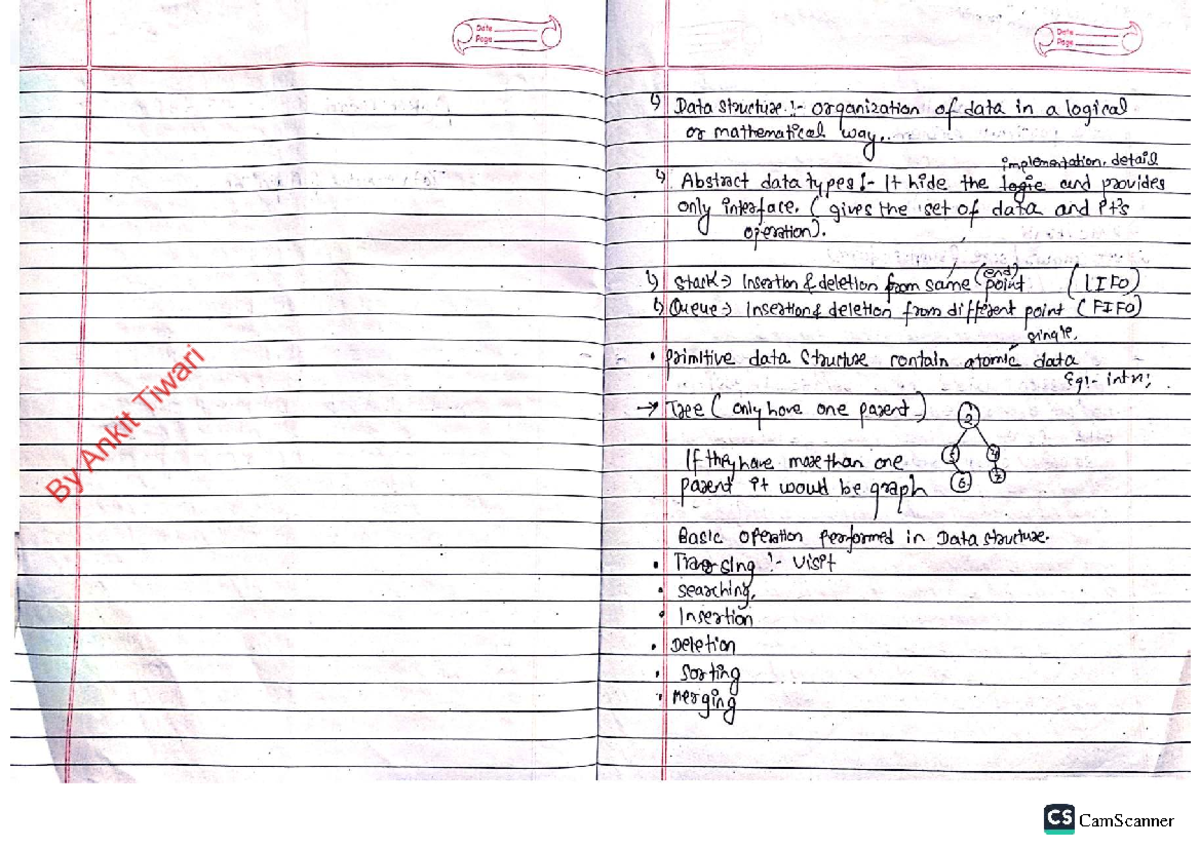 Date
Page
Date
Page
↳ Data structure :- organization of data in a logical
or mathematical way.
implementation detail
↳ Abstract data types :- It hide the logic and provides
only interface. ( gives the set of data and it's
operation).
(end)
↳ Stack → Insertion & deletion from same point (LIFO)
↳ Queue → Insertion & deletion from different point (FIFO)
single.
• primitive data structure contain atomic data
Eg:- int x;
→ Tree ( only have one parent )
2
4
If they have more than one
parent it would be graph
6
Basic operation performed in Data structure.
• Traversing :- visit
• searching,
• Insertion
• Deletion
• Sorting
• Merging
By Ankit Tiwari
CS CamScanner